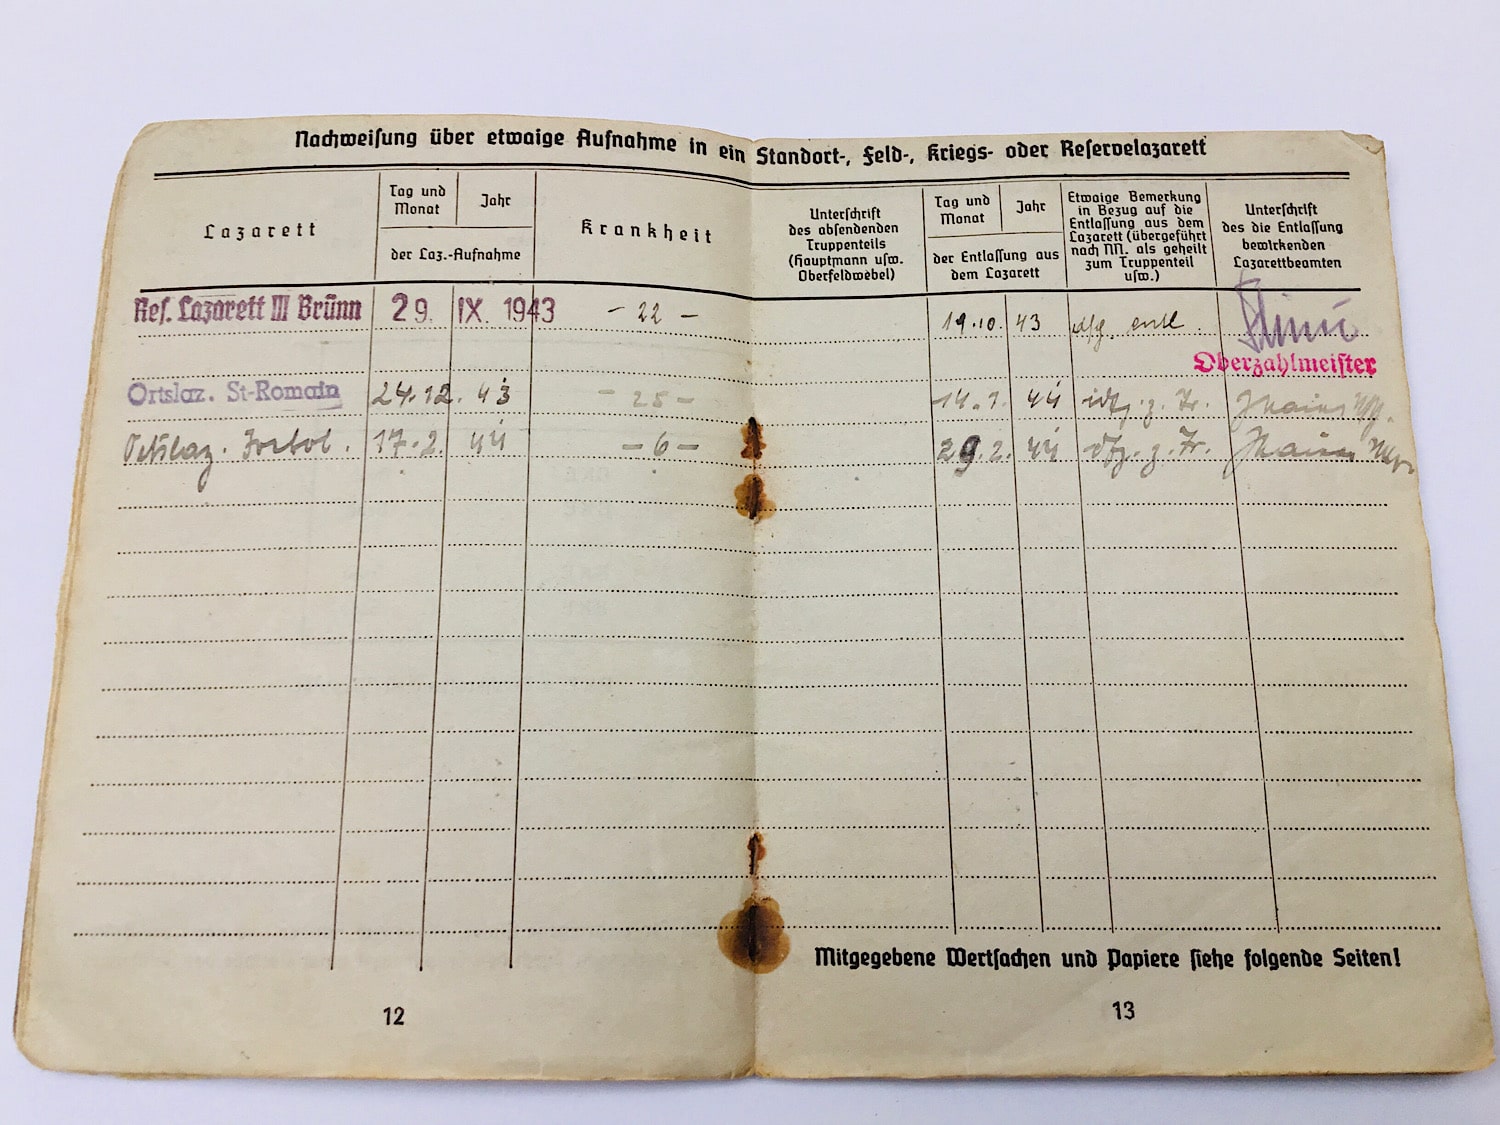 Nachweisung über etwaige Aufnahme in ein Standort-, Feld-, Kriegs- oder Reservelazarett
Lazarett
Tag und Monat
Jahr
der Laz.-Aufnahme
Krankheit
Unterschrift
des absendenden
Truppenteils
(Hauptmann usw.
Oberfeldwebel)
Tag und Monat
Jahr
der Entlassung aus
dem Lazarett
Etwaige Bemerkung
in Bezug auf die
Entlassung aus dem
Lazarett (übergeführt
nach NN. als geheilt
zum Truppenteil
usw.)
Unterschrift
des die Entlassung
bewirkenden
Lazarettbeamten
Res. Lazarett III Brünn 29. IX. 1943 - 22 - 19.10. 43 dfg. entl.
Oberzahlmeister
Ortslaz. St-Romain 24.12. 43 - 25 - 14.1. 44 dfg. z. Tr.
Ortslaz. 17.2. 44 - 6 - 29.2. 44 dfg. z. Tr.
Mitgegebene Wertsachen und Papiere siehe folgende Seiten!
12
13